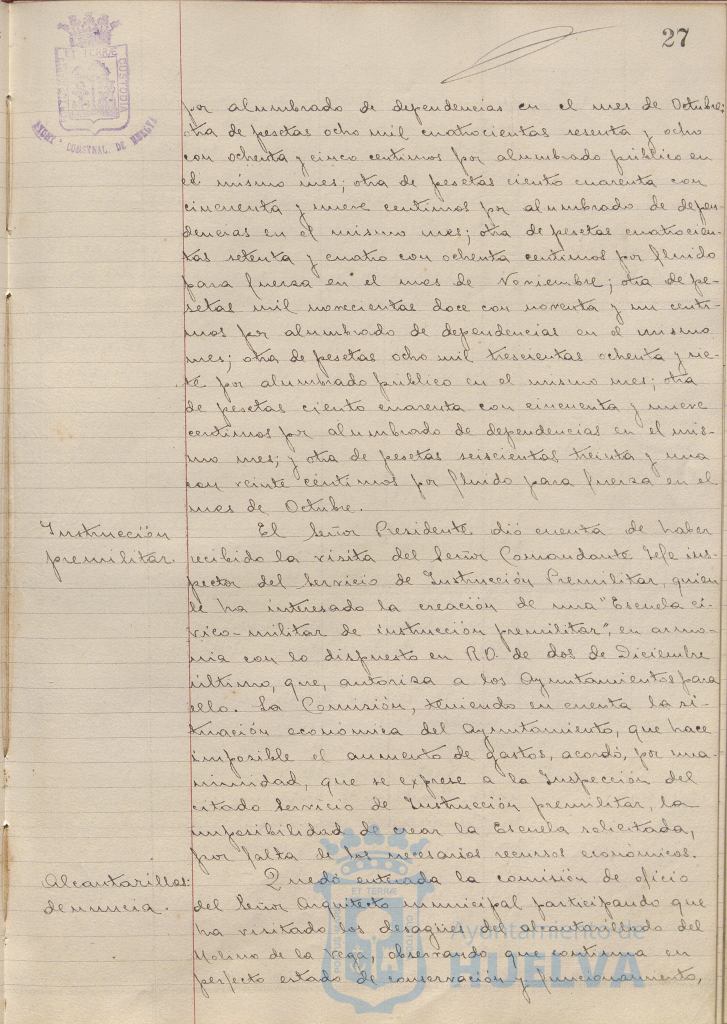 27
por alumbrado de dependencias en el mes de Octubre;
otra de pesetas ocho mil cuatrocientas sesenta y ocho
con ochenta y cinco centimos por alumbrado público en
el mismo mes; otra de pesetas ciento cuarenta con
cincuenta y nueve centimos por alumbrado de depen-
dencias en el mismo mes; otra de pesetas cuatrocien-
tas setenta y cuatro con ochenta centimos por fluido
para fuerza en el mes de Noviembre; otra de pe-
setas mil novecientas doce con noventa y un centi-
mos por alumbrado de dependencias en el mismo
mes; otra de pesetas ocho mil trescientas ochenta y sie-
te por alumbrado público en el mismo mes; otra
de pesetas ciento cuarenta con cincuenta y nueve
centimos por alumbrado de dependencias en el mis-
mo mes; y otra de pesetas seiscientas treinta y una
con veinte céntimos por fluido para fuerza en el
mes de Octubre.
Instrucción
premilitar.
El Señor Presidente dió cuenta de haber
recibido la visita del Señor Comandante Jefe ins-
pector del Servicio de Instrucción Premilitar, quien
le ha interesado la creación de una "Escuela cí-
vico-militar de instrucción premilitar", en armo-
nia con lo dispuesto en R.D. de dos de Diciembre
último, que, autoriza a los Ayuntamientos para
ello. La Comisión, teniendo en cuenta la si-
tuación económica del Ayuntamiento, que hace
imposible el aumento de gastos, acordó, por una-
nimidad, que se exprese a la Inspección del
citado Servicio de Instrucción premilitar, la
imposibilidad de crear la Escuela solicitada,
por falta de los necesarios recursos económicos.
Alcantarillas:
denuncia.
Quedó enterada la comisión de oficio
del Señor Arquitecto municipal participando que
ha visitado los desagües del alcantarillado del
Molino de la Vega, observando que continua en
perfecto estado de conservación y funcionamiento,
ET TERRÆ
CUSTODIA
AYUNT. CONSTNAL. DE HUELVA
ET TERRÆ
Ayuntamiento de
HUELVA